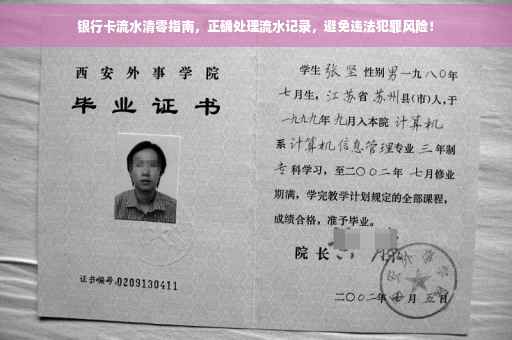 银行卡流水清零指南，正确处理流水记录，避免违法犯罪风险！
西安外事学院
毕业证书
证书编号:0209130411
学生 张 坚 性别 男 一九八〇年
七月生，江苏省 苏州 县(市)人，于
一九九九年 九月入本院 计算机
系 计算机信息管理专业 三 年制
专 科学习，至二〇〇二年 七月修业
期满，学完教学计划规定的全部课程，
成绩合格，准予毕业。
院长
二〇〇二年 月 五 日